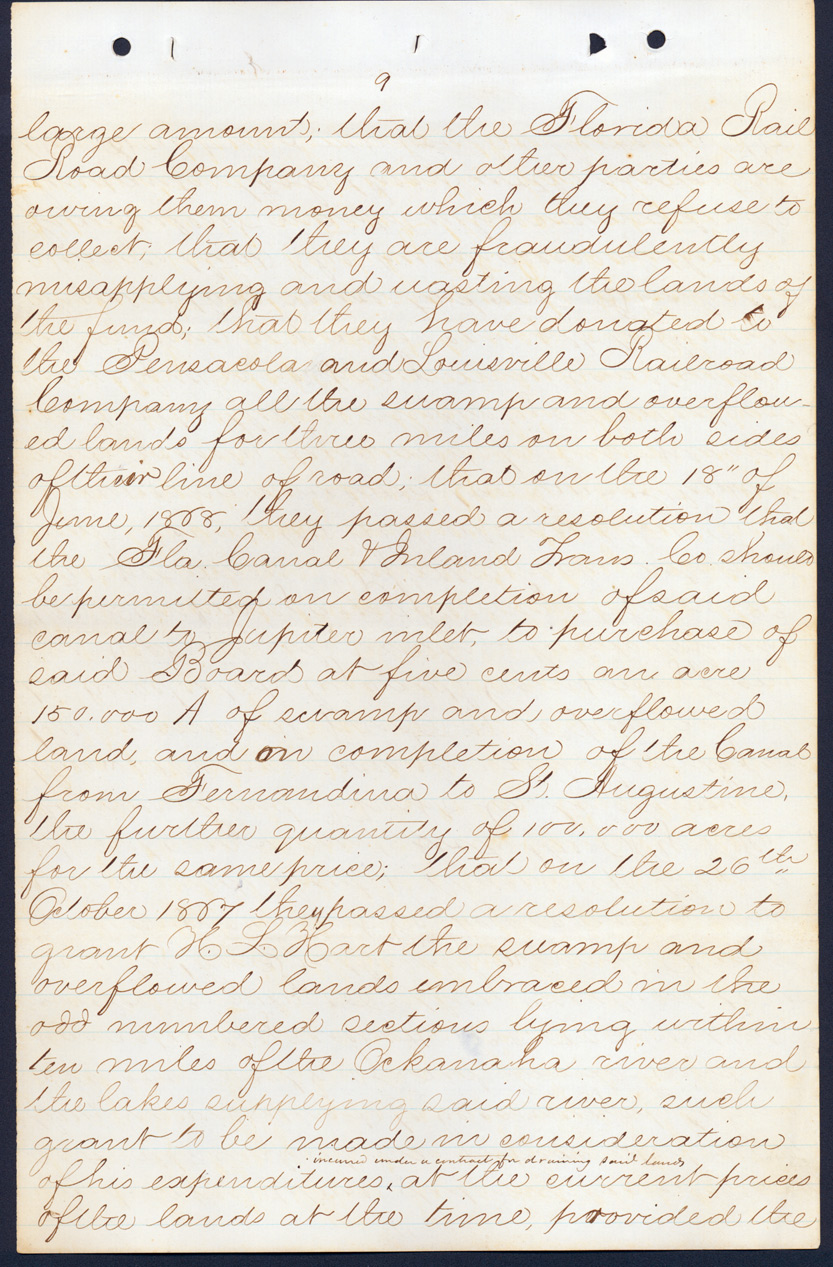 9
large amount; that the Florida Rail
Road Company and other parties are
owing them money which they refuse to
collect; that they are fraudulently
misapplying and wasting the lands of
the fund; that they have donated to
the Pensacola and Louisville Railroad
Company all the swamp and overflow-
ed lands for three miles on both sides
of their line of road; that on the 18" of
June, 1868, they passed a resolution that
the Fla. Canal & Inland Trans. Co. should
be permitted on completion of said
canal to Jupiter inlet, to purchase of
said Board at five cents an acre
150.000 A of swamp and overflowed
land, and on completion of the Canal
from Fernandina to St. Augustine,
the further quantity of 100.000 acres
for the same price; that on the 26th
October 1867 they passed a resolution to
grant H. L. Hart the swamp and
overflowed lands embraced in the
odd numbered sections lying within
ten miles of the Ockanaha river and
the lakes supplying said river, such
grant to be made in consideration
incurred under a contract for draining said lands
of his expenditures, at the current prices
of the lands at the time, provided the